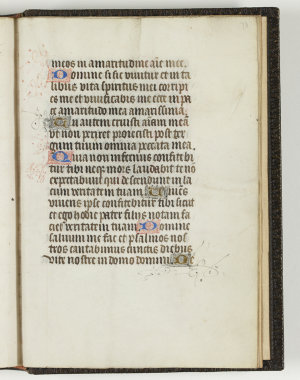 meos in amaritudine aīe mee.
Domine si sic vivitur et in ta
libus vita spiritus mei corripi
es me et vivificabis me ecce in pa
ce amaritudo mea amarissima
Tu autem eruisti aīam mea
ut non periret proiecisti post ter
gum tuum omnia peccata mea.
Quia non infernus confitebi
tur tibi neqꝫ mors laudabit te no
expectabunt qui descendunt in la
cum veritatem tuam Vivēs
vivens ipse confitebitur tibi sicut
et ego hodie pater filijs notam fa
ciet veritatem tuam Domine
salvum me fac et psalmos nos
tros cantabimus cunctis diebus
vite nostre in domo domini